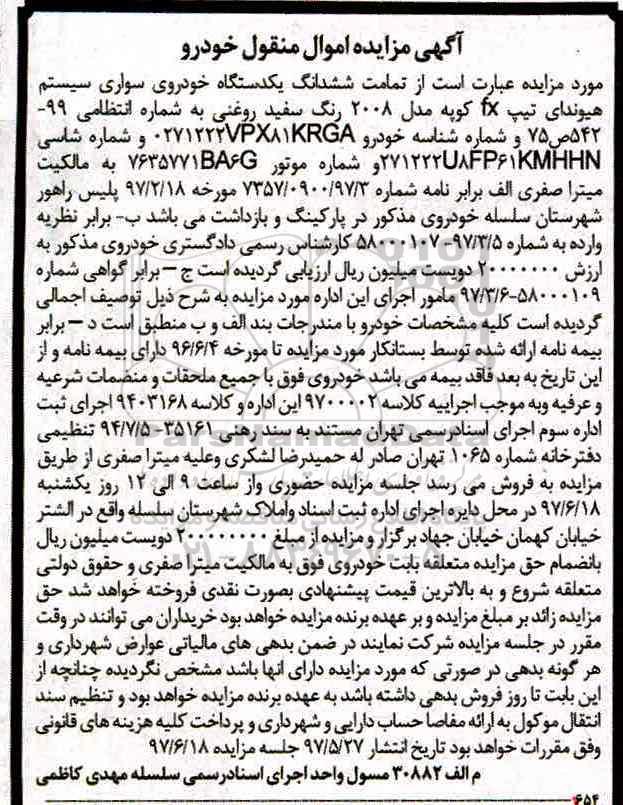 آگهی مزایده اموال منقول خودرو
مورد مزایده عبارت است از تمامت ششدانگ یکدستگاه خودروی سواری سیستم
هیوندای تیپ fx کوپه مدل ۲۰۰۸ رنگ سفید روغنی به شماره انتظامی ۹۹-
۵۴۲ص۷۵ و شماره شناسه خودرو ۰۲۷۱۲۲۲VPX۸۱KRGA و شماره شاسی
۲۷۱۲۲۲U۸FP۶۱KMHHNو شماره موتور ۷۶۳۵۷۷۱BA۶G به مالکیت
میترا صفری الف برابر نامه شماره ۷۳۵۷/۰۹۰۰/۹۷/۳ مورخه ۹۷/۲/۱۸ پلیس راهور
شهرستان سلسله خودروی مذکور در پارکینگ و بازداشت می باشد ب- برابر نظریه
وارده به شماره ۹۷/۳/۵-۵۸۰۰۰۱۰۷ کارشناس رسمی دادگستری خودروی مذکور به
ارزش ۲۰۰۰۰۰۰۰۰ دویست میلیون ریال ارزیابی گردیده است ج – برابر گواهی شماره
۵۸۰۰۰۱۰۹-۹۷/۳/۶ مامور اجرای این اداره مورد مزایده به شرح ذیل توصیف اجمالی
گردیده است کلیه مشخصات خودرو با مندرجات بند الف و ب منطبق است د – برابر
بیمه نامه ارائه شده توسط بستانکار مورد مزایده تا مورخه ۹۶/۶/۴ دارای بیمه نامه و از
این تاریخ به بعد فاقد بیمه می باشد خودروی فوق با جمیع ملحقات و منضمات شرعیه
و عرفیه وبه موجب اجراییه کلاسه ۹۷۰۰۰۰۲ این اداره و کلاسه ۹۴۰۳۱۶۸ اجرای ثبت
اداره سوم اجرای اسنادرسمی تهران مستند به سند رهنی ۳۵۱۶۱-۹۴/۷/۵ تنظیمی
دفترخانه شماره ۱۰۶۵ تهران صادر له حمیدرضا لشکری وعلیه میترا صفری از طریق
مزایده به فروش می رسد جلسه مزایده حضوری واز ساعت ۹ الی ۱۲ روز یکشنبه
۹۷/۶/۱۸ در محل دایره اجرای اداره ثبت اسناد واملاک شهرستان سلسله واقع در الشتر
خیابان کهمان خیابان جهاد برگزار و مزایده از مبلغ ۲۰۰۰۰۰۰۰۰ دویست میلیون ریال
بانضمام حق مزایده متعلقه بابت خودروی فوق به مالکیت میترا صفری و حقوق دولتی
متعلقه شروع و به بالاترین قیمت پیشنهادی بصورت نقدی فروخته خواهد شد حق
مزایده زائد بر مبلغ مزایده و بر عهده برنده مزایده خواهد بود خریداران می توانند در وقت
مقرر در جلسه مزایده شرکت نمایند در ضمن بدهی های مالیاتی عوارض شهرداری و
هر گونه بدهی در صورتی که مورد مزایده دارای انها باشد مشخص نگردیده چنانچه از
این بابت تا روز فروش بدهی داشته باشد به عهده برنده مزایده خواهد بود و تنظیم سند
انتقال موکول به ارائه مفاصا حساب دارایی و شهرداری و پرداخت کلیه هزینه های قانونی
وفق مقررات خواهد بود تاریخ انتشار ۹۷/۵/۲۷ جلسه مزایده ۹۷/۶/۱۸
م الف ۳۰۸۸۲ مسول واحد اجرای اسنادرسمی سلسله مهدی کاظمی
۶۵۴
ParsNamadData
۰۲۱-۸۸۳۴۹۶۷۰-۵